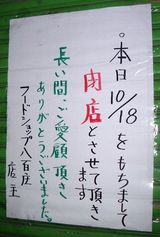 。本日10/18をもちまして
閉店とさせて頂き
ます
長い間、ご愛顧頂き
ありがとうございました。
フードショップ八百庄
店主